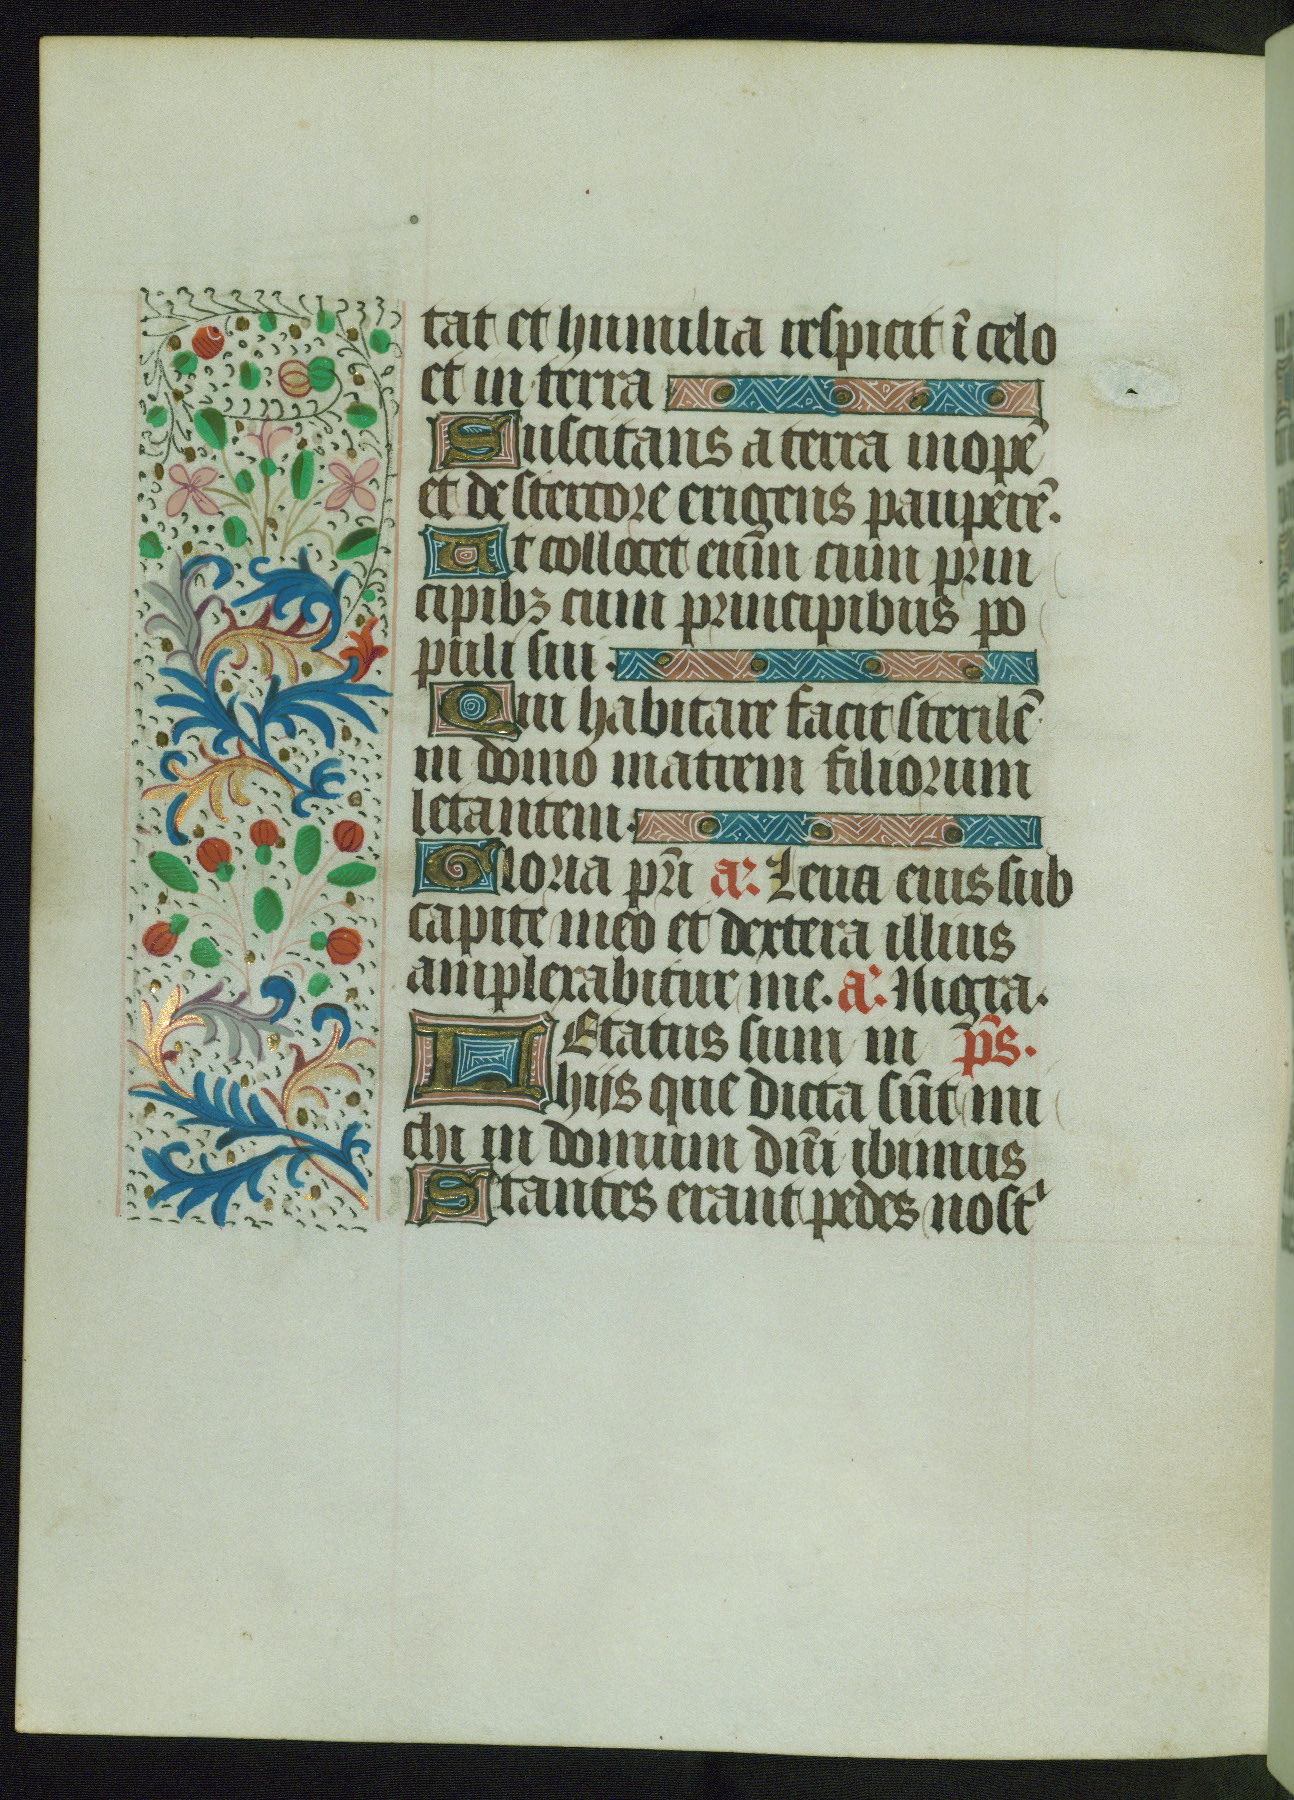 tat et humilia respicit ī celo
et in terra
Suscitans a terra inopē
et de stercore erigens pauperē.
Ut collocet eum̄ cum prin
cipibꝫ cum principibus po
puli sui.
Qui habitare facit sterilē
in domo matrem filiorum
letantem.
Gloria pr̄i a: Leua eius sub
capite meo et dextera illius
amplexabitur me. a: Nigra.
LEtatus sum in ps̄.
hijs que dicta sūt mi
chi in domum dn̄i ibimus
Stantes erant pedes nostʳ